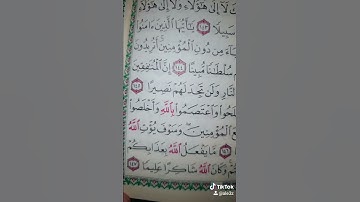 لَآ إِلَىٰ هَٰٓؤُلَآءِ وَلَآ إِلَىٰ هَٰٓؤُلَآءِ
سَبِيلًا ١٤٣ يَٰٓأَيُّهَا ٱلَّذِينَ ءَامَنُوا۟
مِن دُونِ ٱلْمُؤْمِنِينَ أَتُرِيدُونَ
سُلْطَٰنًا مُّبِينًا ١٤٤ إِنَّ ٱلْمُنَٰفِقِينَ
ٱلنَّارِ وَلَن تَجِدَ لَهُمْ نَصِيرًا ١٤٥
وَٱعْتَصَمُوا۟ بِٱللَّهِ وَأَخْلَصُوا۟
ٱلْمُؤْمِنِينَ وَسَوْفَ يُؤْتِ ٱللَّهُ
١٤٦ مَّا يَفْعَلُ ٱللَّهُ بِعَذَابِكُمْ
وَكَانَ ٱللَّهُ شَاكِرًا عَلِيمًا ١٤٧
TikTok